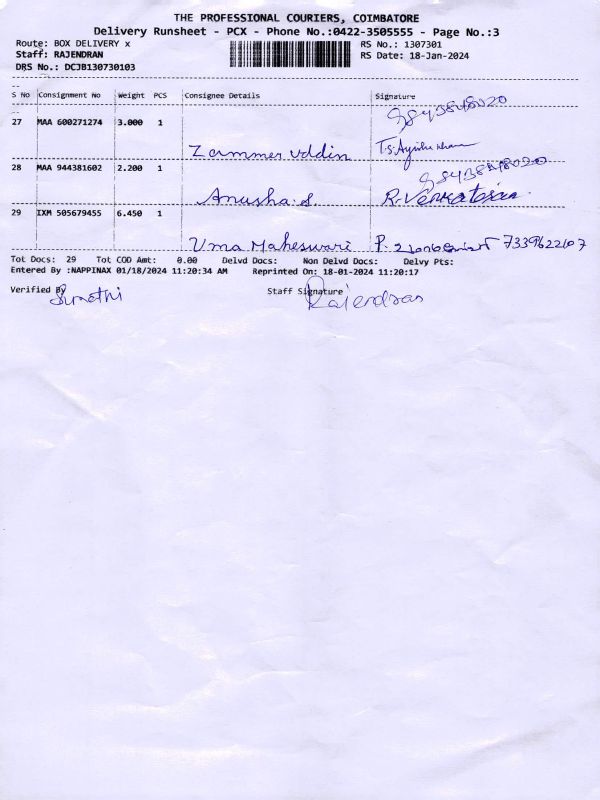 THE PROFESSIONAL COURIERS, COIMBATORE
Delivery Runsheet - PCX - Phone No.:0422-3505555 - Page No.:3
Route: BOX DELIVERY x
RS No.: 1307301
Staff: RAJENDRAN
RS Date: 18-Jan-2024
DRS No.: DCJB130730103
S No Consignment No Weight PCS Consignee Details Signature
27 MAA 600271274 3.000 1
Zammer Uddin
28 MAA 944381602 2.200 1
Anusha.S
29 IXM 505679455 6.450 1
Uma Maheswari P. 7339622107
Tot Docs: 29 Tot COD Amt: 0.00 Delvd Docs: Non Delvd Docs: Delvy Pts:
Entered By :NAPPINAX 01/18/2024 11:20:34 AM Reprinted On: 18-01-2024 11:20:17
Verified By
Staff Signature
Rajendran